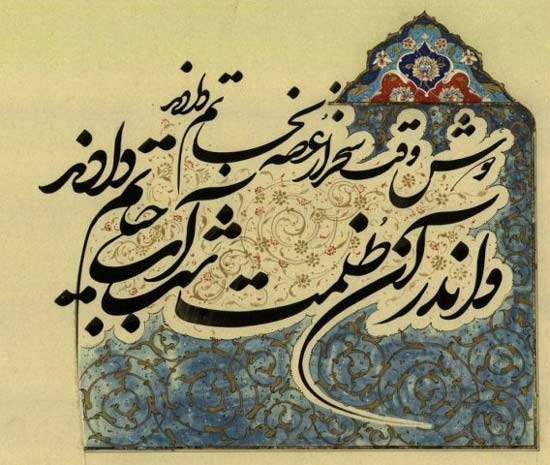 دوش وقت سحر از غصه نجاتم دادند
واندر آن ظلمت شب آب حیاتم دادند